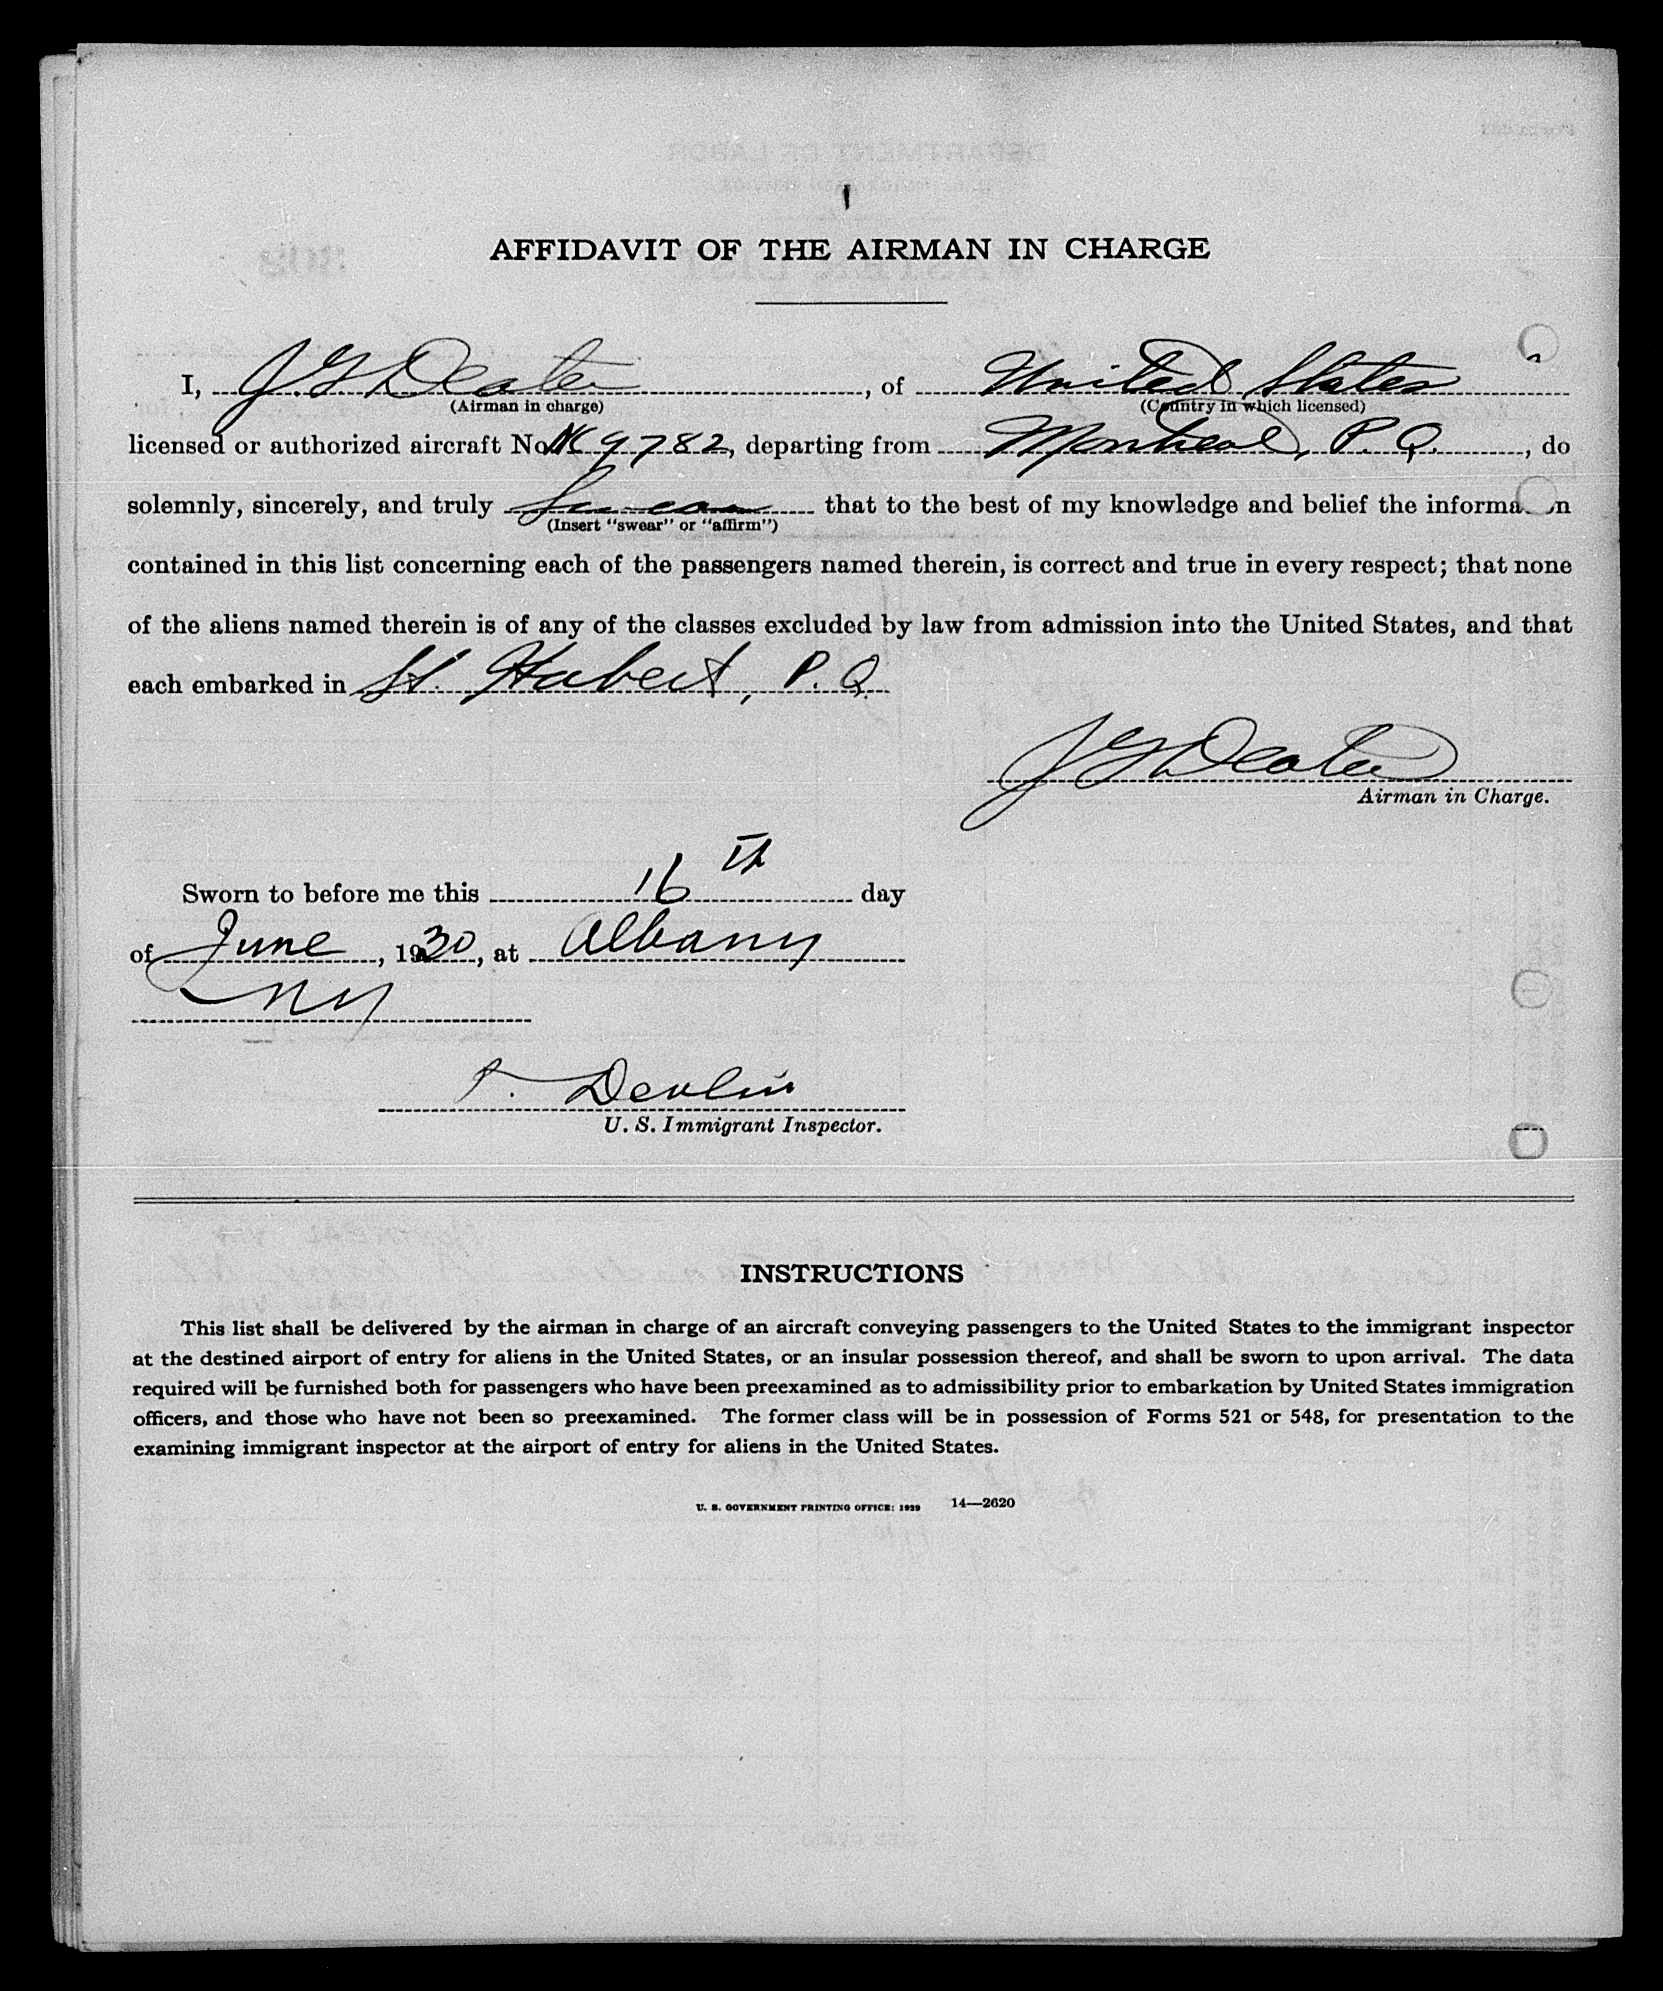 AFFIDAVIT OF THE AIRMAN IN CHARGE
I, J G Deater, of United States
(Airman in charge) (Country in which licensed)
licensed or authorized aircraft No. NC 9782, departing from Montreal, P.Q., do
solemnly, sincerely, and truly swear that to the best of my knowledge and belief the information
(Insert "swear" or "affirm")
contained in this list concerning each of the passengers named therein, is correct and true in every respect; that none
of the aliens named therein is of any of the classes excluded by law from admission into the United States, and that
each embarked in St. Hubert, P.Q.
J G Deater
Airman in Charge.
Sworn to before me this 16th day
of June, 1930, at Albany
NY
Devlin
U. S. Immigrant Inspector.
INSTRUCTIONS
This list shall be delivered by the airman in charge of an aircraft conveying passengers to the United States to the immigrant inspector
at the destined airport of entry for aliens in the United States, or an insular possession thereof, and shall be sworn to upon arrival. The data
required will be furnished both for passengers who have been preexamined as to admissibility prior to embarkation by United States immigration
officers, and those who have not been so preexamined. The former class will be in possession of Forms 521 or 548, for presentation to the
examining immigrant inspector at the airport of entry for aliens in the United States.
U. S. GOVERNMENT PRINTING OFFICE: 1929 14—2620